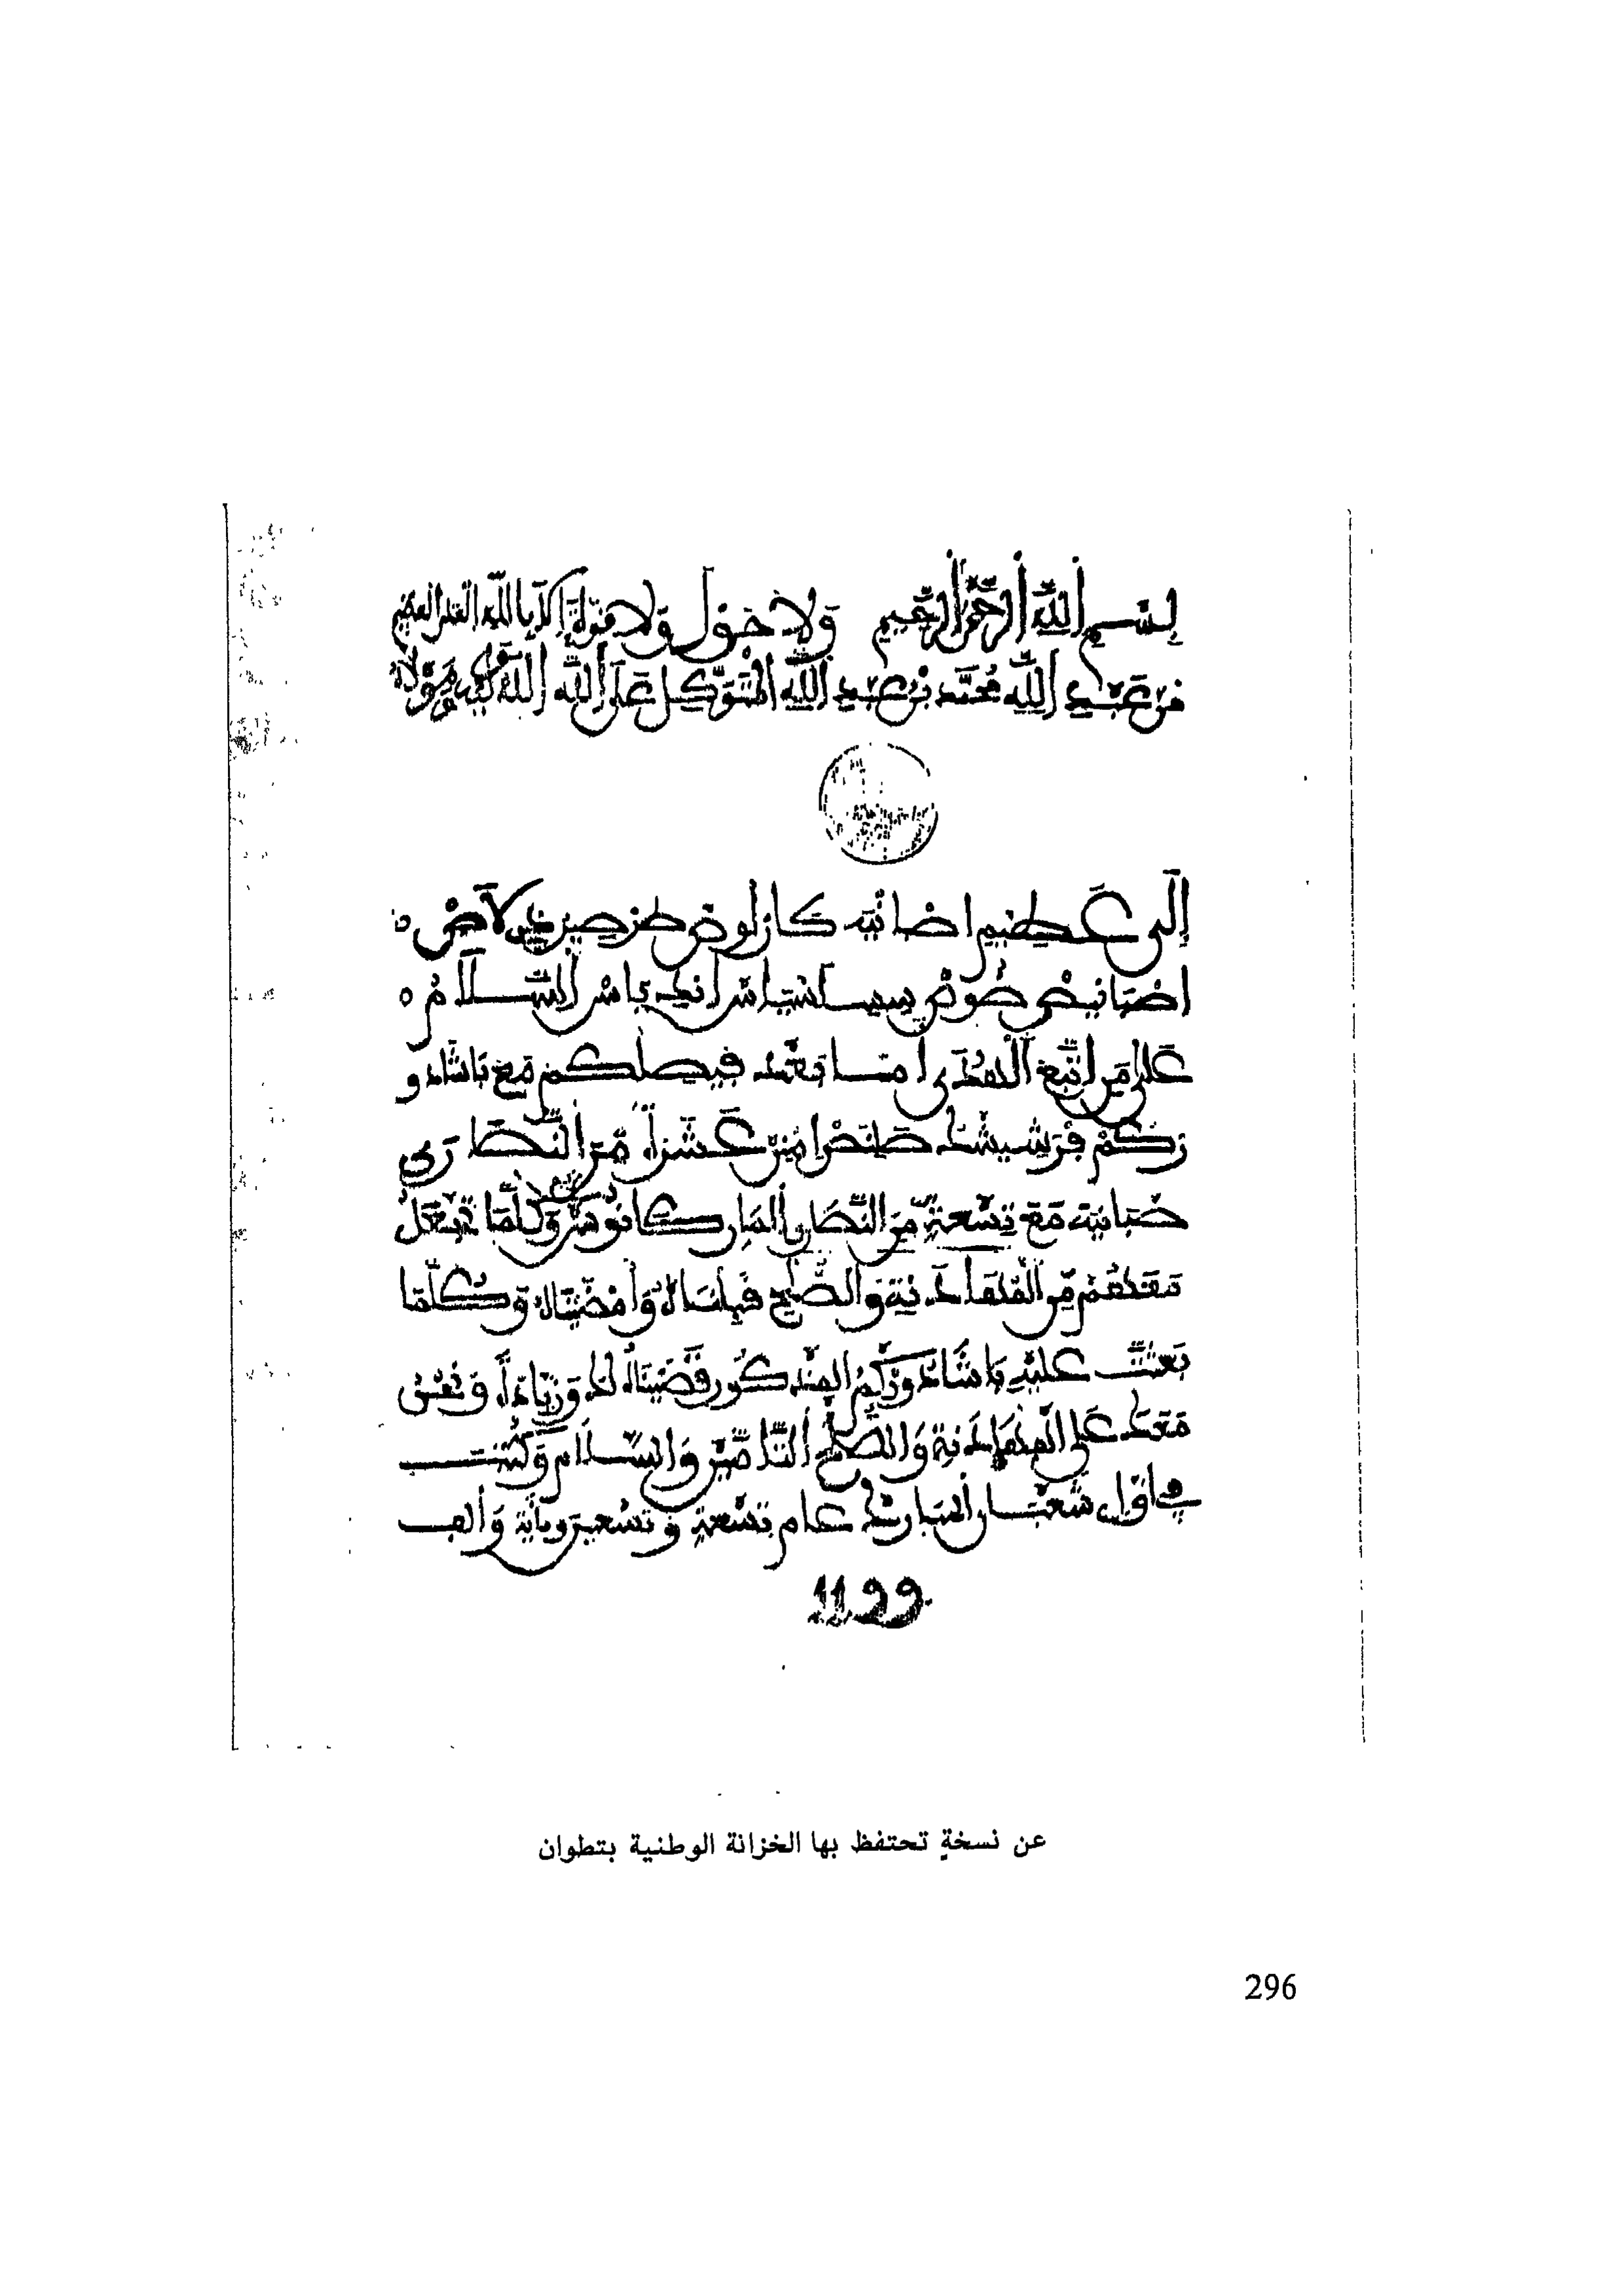 بسم الله الرحمن الرحيم ولا حول ولا قوة إلا بالله العلي العظيم
من عبد الله محمد بن عبد الله المتوكل على الله الله ومولاه
إلى عظيم اصبانيه كارلوص طرصير لاصي
اصبانيص السلام
على من اتبع الهدى اما بعد فيصلكم مع باشادو
ركم عشرا من النصارى
صبانية مع تسعة من النصارى الذي كانوا وكلما
معكم من المهادنة والصلح وامضيناه وكلما
بعثت عليه باشادوركم المذكور قضيناه له وزيادة ونحن
معك على المهادنة والصلح والسلام وكتب
في اول شعبان المبارك عام تسعة وتسعين ومائة وألف
1199
عن نسخةٍ تحتفظ بها الخزانة الوطنية بتطوان
296